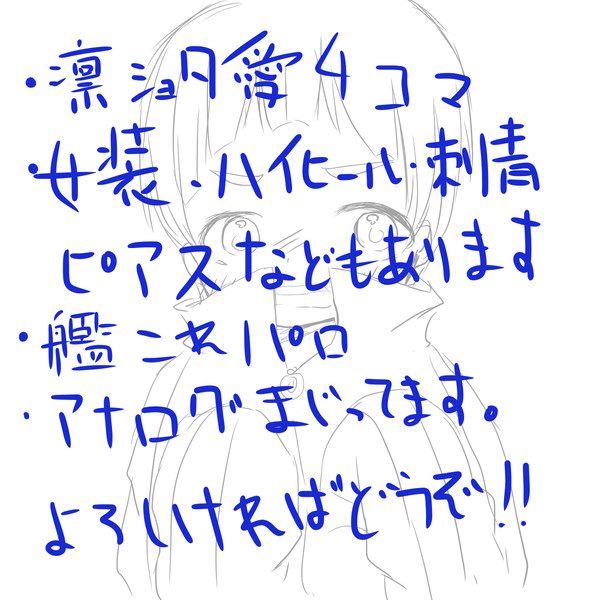 ・凛ショタ愛4コマ
・女装・ハイヒール・刺青
ピアスなどもあります
・艦これパロ
・アナログまじってます。
よろしければどうぞ!!